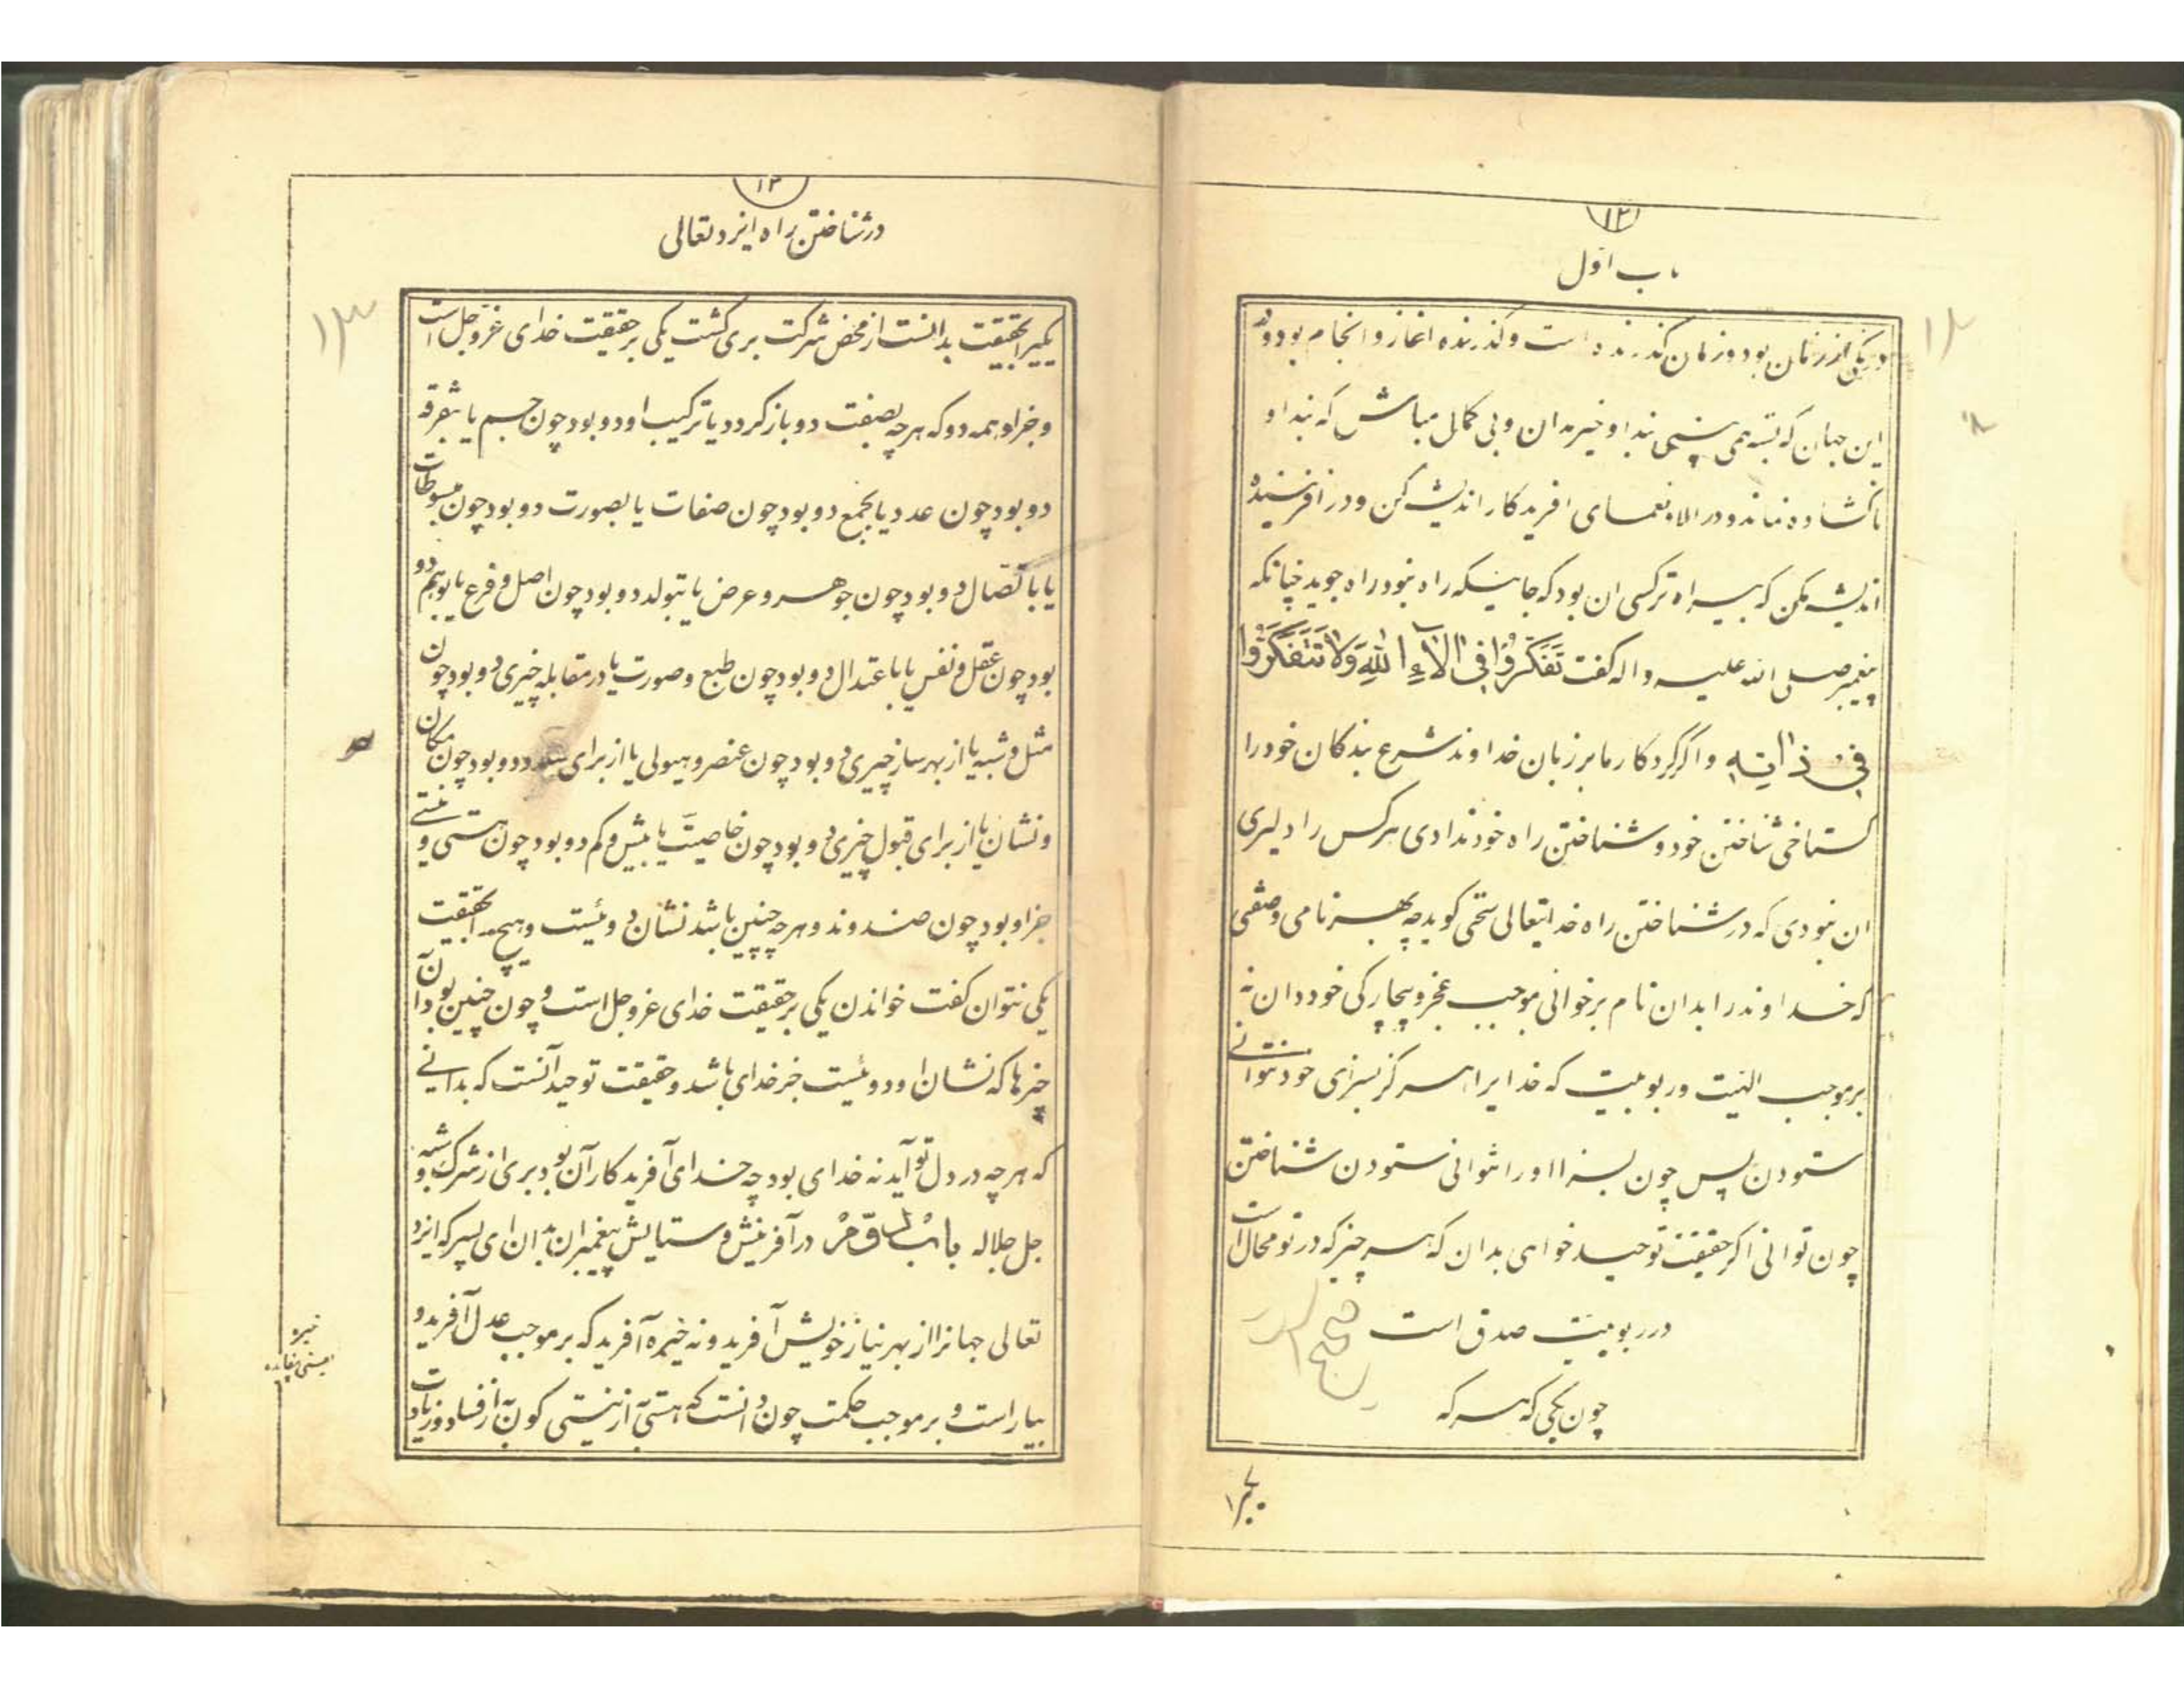 ۱۲
باب اول
درنگی از زمان بود و زمان گذرنده است و گذرنده را آغاز و انجام بود و
این جهان که بسته همی بینی بند او خیره مدان و بی گمان مباش که بند او
ناگشاده نماند و در الاء و نعمای افریدکار اندیشه کن و در افریننده
اندیشه مکن که بیراه ترکسی ان بود که جائیکه راه نبود راه جوید چنانکه
پیغمبر صلی الله علیه و اله گفت تَفَكَّرُوا فِي الْآءِ اللهِ وَلَا تَتَفَكَّرُوا
فی ذاته و اگر کردکار ما بر زبان خداوند شرع بندکان خود را
گستاخی شناختن خود و شناختن راه خود ندادی هرکس را دلیری
ان نبودی که در شناختن راه خدایتعالی سخن گوید چه بهر نامی و صفتی
که خداوند را بدان نام برخوانی بموجب عجز و بیچارکی خود دان نه
برموجب الهیت و ربوبیت که خدایرا هرگز بسزای خود نتوانی
ستودن پس چون بسزا او را نتوانی ستودن شناختن
چون توانی اگر حقیقت توحید خواهی بدان که هر چیز که در تو محال است
در ربوبیت صدق است
چون یکی که هرکه
یکیرا
۱۳
در شناختن راه ایزد تعالی
یکیرا بحقیقت بدانست از محض شرکت بری گشت یکی برحقیقت خدای عزوجل است
و جز او همه دو که هرچه بصفت دو باز گردد یا ترکیب او دو بود چون جسم یا بتفرقه
دو بود چون عدد یا بجمع دو بود چون صفات یا بصورت دو بود چون مبسوطات
یا باتصال دو بود چون جوهر و عرض یا بتولد دو بود چون اصل و فرع یا بوهم دو
بود چون عقل و نفس یا باعتدال دو بود چون طبع و صورت یا در مقابله چیزی دو بود چون
مثل و شبه یا از بهر ساز چیزی دو بود چون عنصر و هیولی یا از برای دو بود چون مکان
و نشان یا از برای قبول چیزی دو بود چون خاصیت یا بیش و کم دو بود چون هستی و نیستی
جز او بود چون ضد و ند و هرچه چنین باشد نشان دوئیست و هیچ را بحقیقت
یکی نتوان گفت خواندن یکی بر حقیقت خدای عزوجل است و چون چنین بود آن
چیزها که نشان او دوئیست جز خدای باشد و حقیقت توحید آنست که بدانی
که هرچه در دل تو آید نه خدای بود چه خدای آفریدکار آن بود بری از شرک و شبه
جل جلاله باب دوّم در آفرینش و ستایش پیغمبران بدان ای پسر که ایزد
تعالی جهانرا از بهر نیاز خویش آفرید و نه خیره آفرید که برموجب عدل آفرید و
بیاراست و بر موجب حکمت چون دانست که هستی به از نیستی کون به از فساد و زیادت
خیره
بمعنی بیفایده